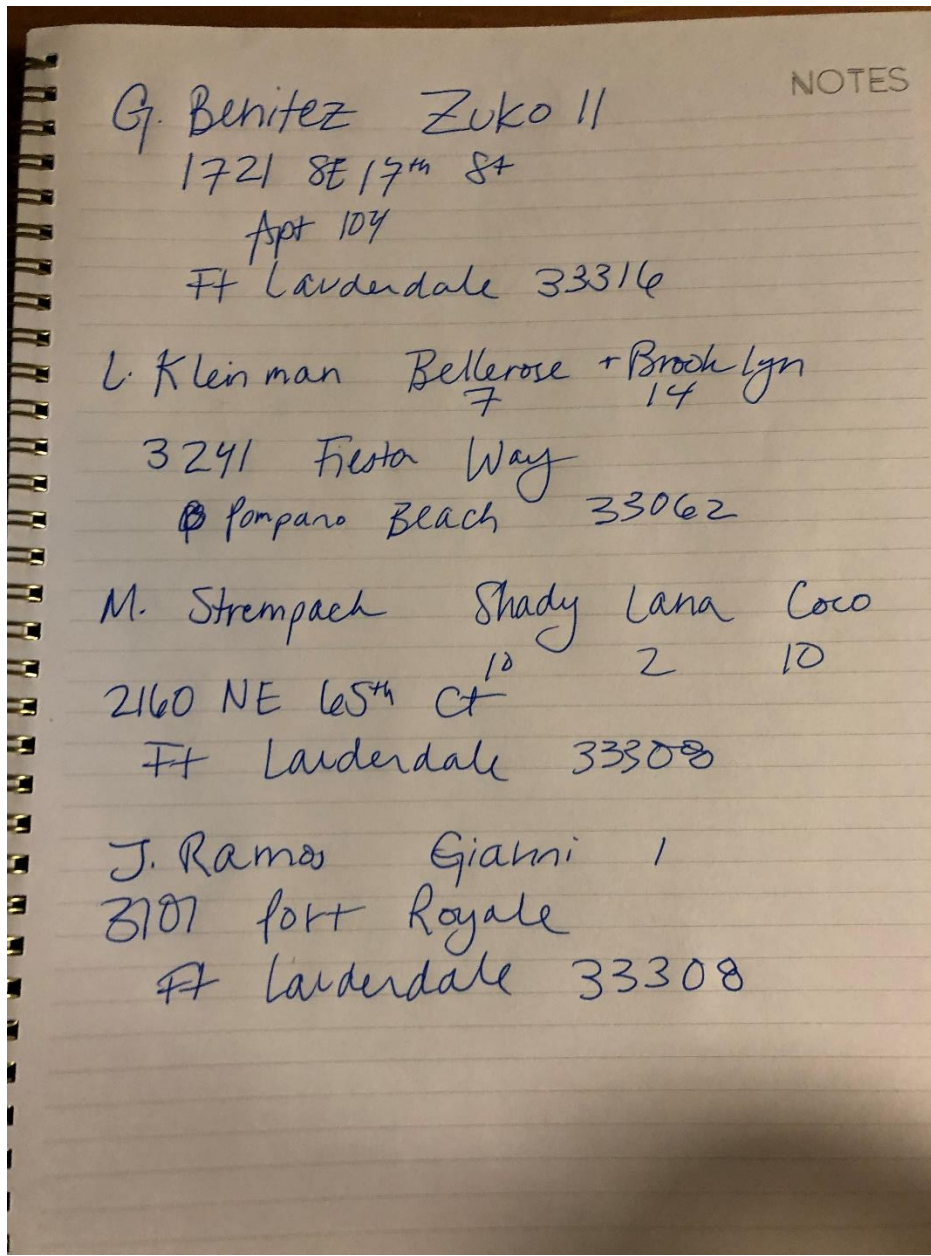 NOTES
G. Benitez Zuko 11
1721 SE 17th St
Apt 104
Ft Lauderdale 33316
L. Kleinman Bellerose + Brooklyn
7 14
3241 Fiesta Way
Pompano Beach 33062
M. Strempack Shady Lana Coco
10 2 10
2160 NE 65th Ct
Ft Lauderdale 33308
J. Ramos Gianni 1
3101 Port Royale
Ft Lauderdale 33308